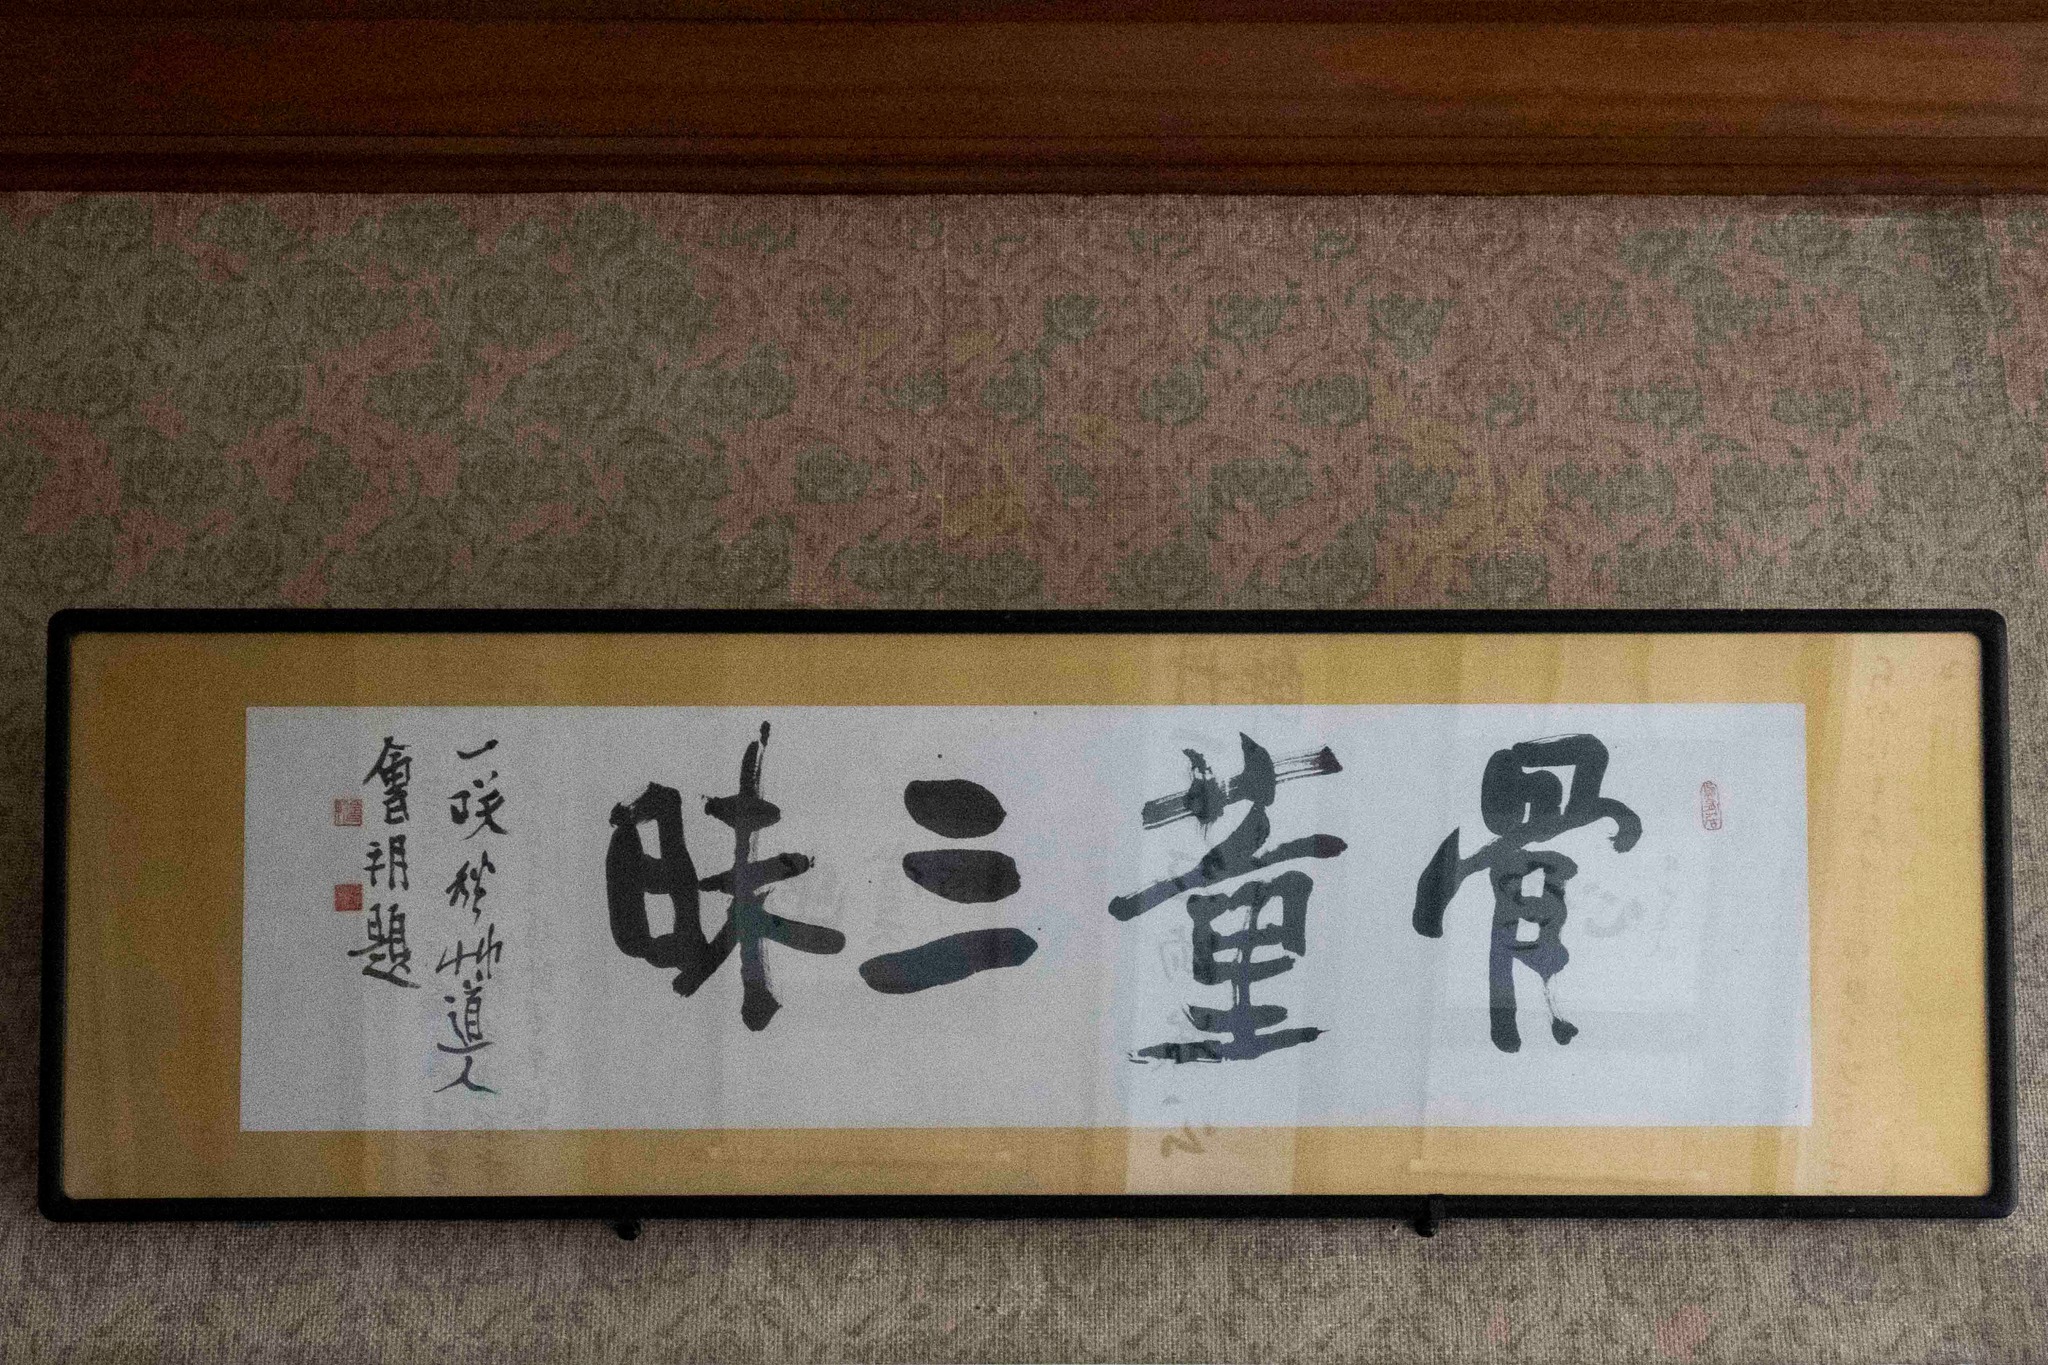 骨董三昧
一咲 艸道人
會 題